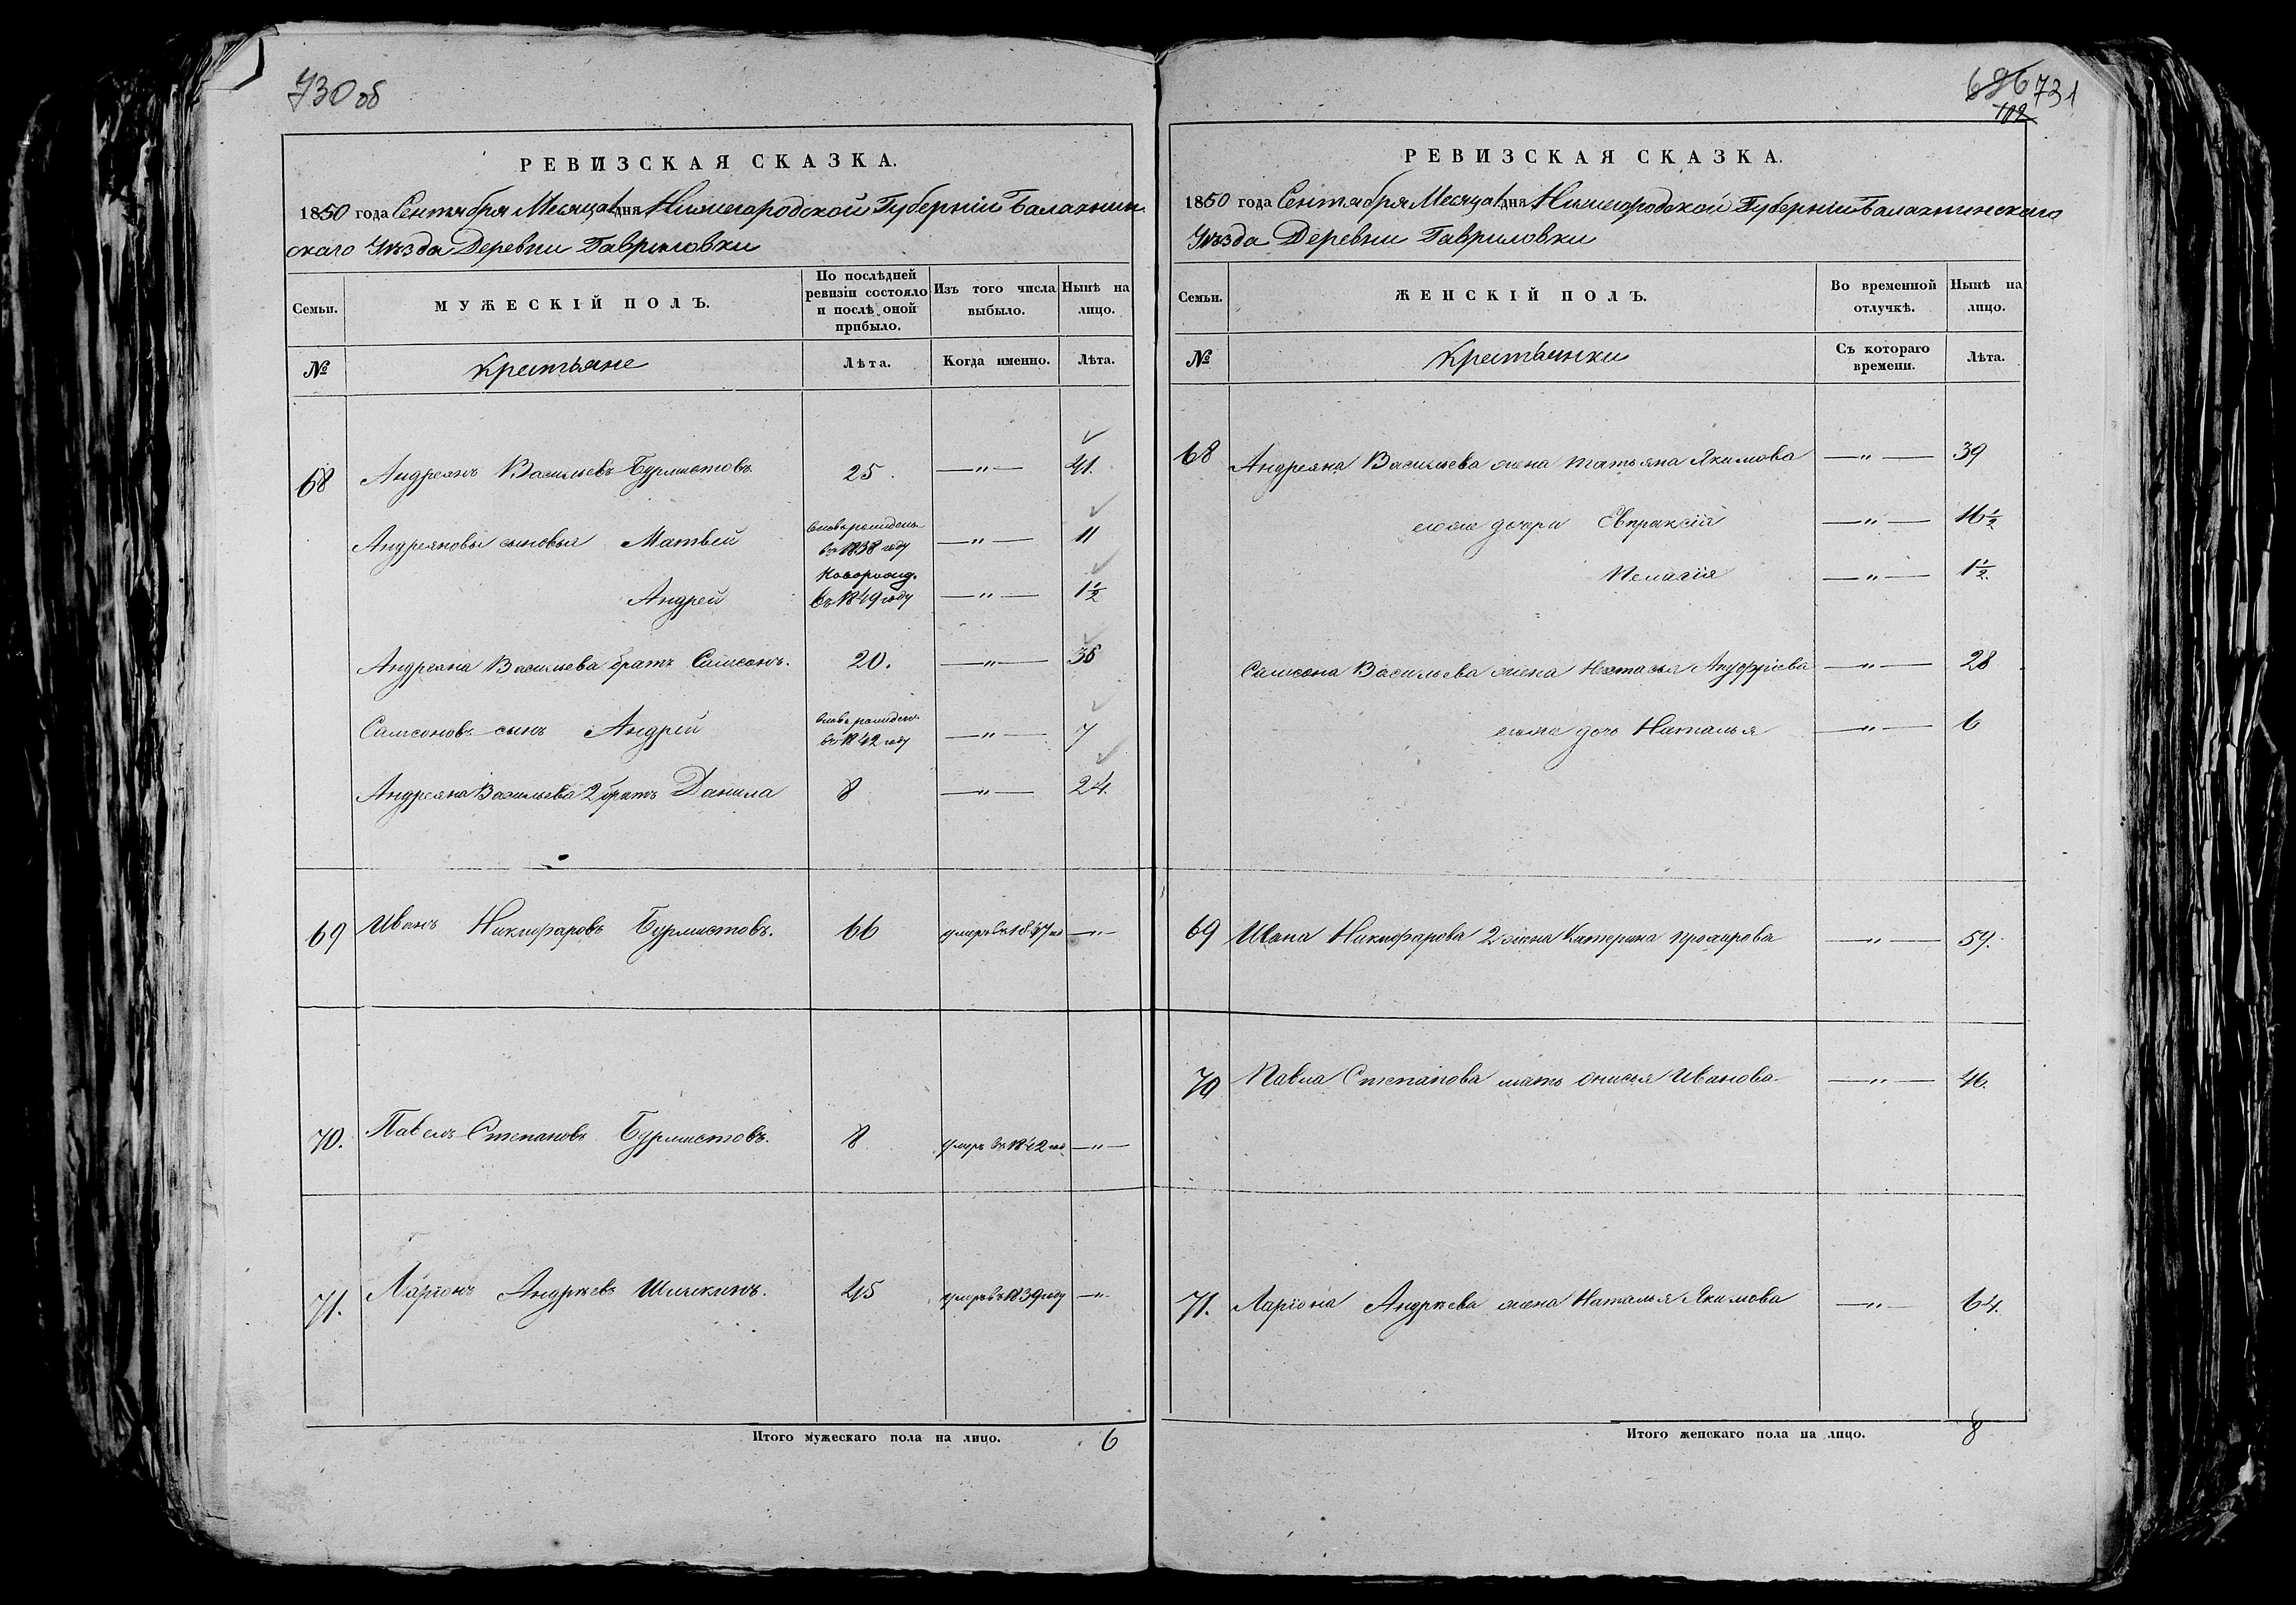 730 об
РЕВИЗСКАЯ СКАЗКА.
1850 года Сентября Месяца 1 дня Нижегородской Губерніи Балахнин
скаго Уѣзда Деревни Гавриловки
Семьи.
МУЖЕСКІЙ ПОЛЪ.
По послѣдней
ревизіи состояло
и послѣ оной
прибыло.
Изъ того числа
выбыло.
Нынѣ на
лицо.
№
Крестьяне
Лѣта.
Когда именно.
Лѣта.
68 Андреянъ Васильевъ Бурмистовъ 25. —„— 41.
Андреяновы сыновья Матвей вновь рожден. въ 1838 году —„— 11
Андрей Новорожд. въ 1849 году —„— 1½
Андреяна Васильева братъ Самсонъ. 20. —„— 36
Самсоновъ сынъ Андрей вновь рожден. въ 1842 году —„— 7
Андреяна Васильева 2 братъ Данила 8 —„— 24.
69 Иванъ Никифаровъ Бурмистовъ. 66 умеръ въ 1847 го —„—
70. Павелъ Степановъ Бурмистовъ. 8 умеръ въ 1842 го —„—
71. Ларіонъ Андреевъ Шишкинъ. 45 умеръ въ 1839 году —„—
Итого мужескаго пола на лицо. 6
696 731
102
РЕВИЗСКАЯ СКАЗКА.
1850 года Сентября Месяца 1 дня Нижегородской Губерніи Балахнинскаго
Уѣзда Деревни Гавриловки
Семьи.
ЖЕНСКІЙ ПОЛЪ.
Во временной
отлучкѣ.
Нынѣ на
лицо.
№
Крестьянки
Съ котораго
времени.
Лѣта.
68 Андреяна Васильева жена Татьяна Якимова —„— 39
его же дочери Евпраксія —„— 16½
Пелагія —„— 1½.
Самсона Васильева жена Настасья Ануфріева —„— 28
его же дочь Наталья —„— 6
69 Ивана Никифарова 2 жена Катерина —„— 59.
70 Павла Степанова мать Онисья Иванова —„— 46.
71. Ларіона Андреева жена Наталья Якимова —„— 64.
Итого женскаго пола на лицо. 8